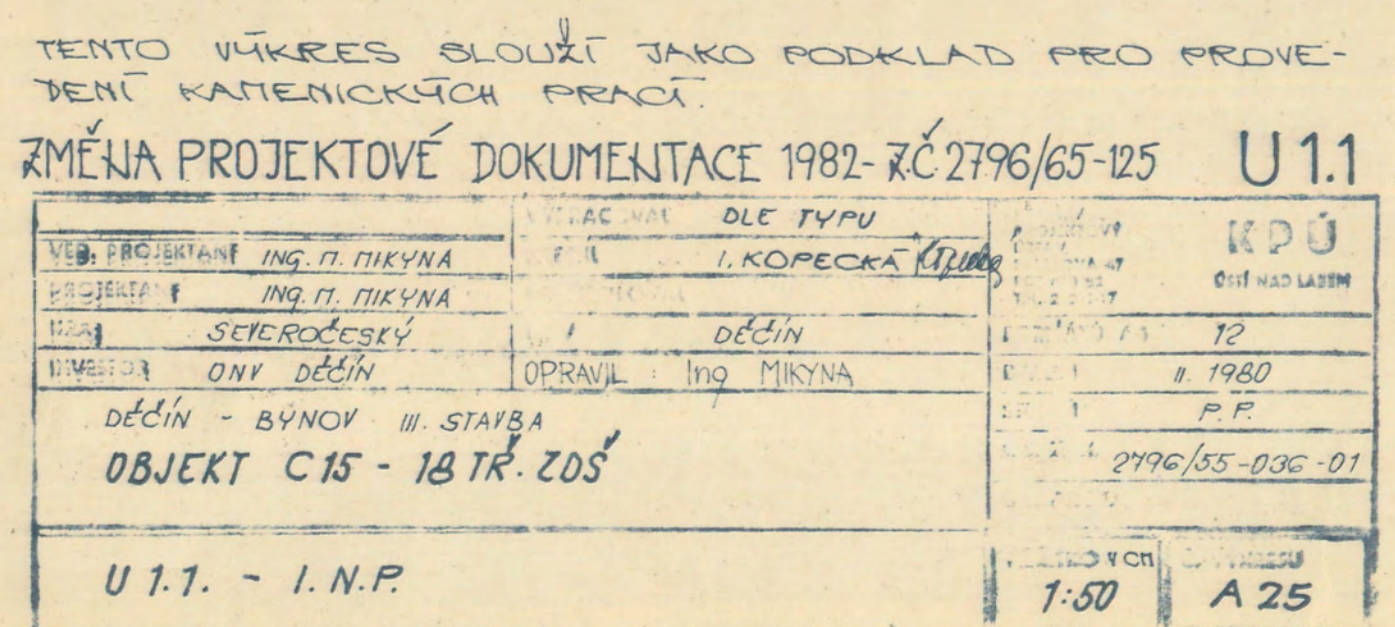 TENTO VÝKRES SLOUŽÍ JAKO PODKLAD PRO PROVE-
DENÍ KAMENICKÝCH PRACÍ.
ZMĚNA PROJEKTOVÉ DOKUMENTACE 1982- Z.Č. 2796/65-125 U 1.1
DLE TYPU
VED. PROJEKTANT ING. M. MIKYNA I. KOPECKÁ
KPÚ
ÚSTÍ NAD LABEM
PROJEKTANT ING. M. MIKYNA
KRAJ SEVEROČESKÝ DĚČÍN 12
INVESTOR ONV DĚČÍN OPRAVIL : Ing MIKYNA II. 1980
DĚČÍN - BYNOV III. STAVBA P.P.
OBJEKT C15 - 18 TŘ. ZDŠ 2796/55-036-01
U 1.1. - I.N.P. 1:50 A 25